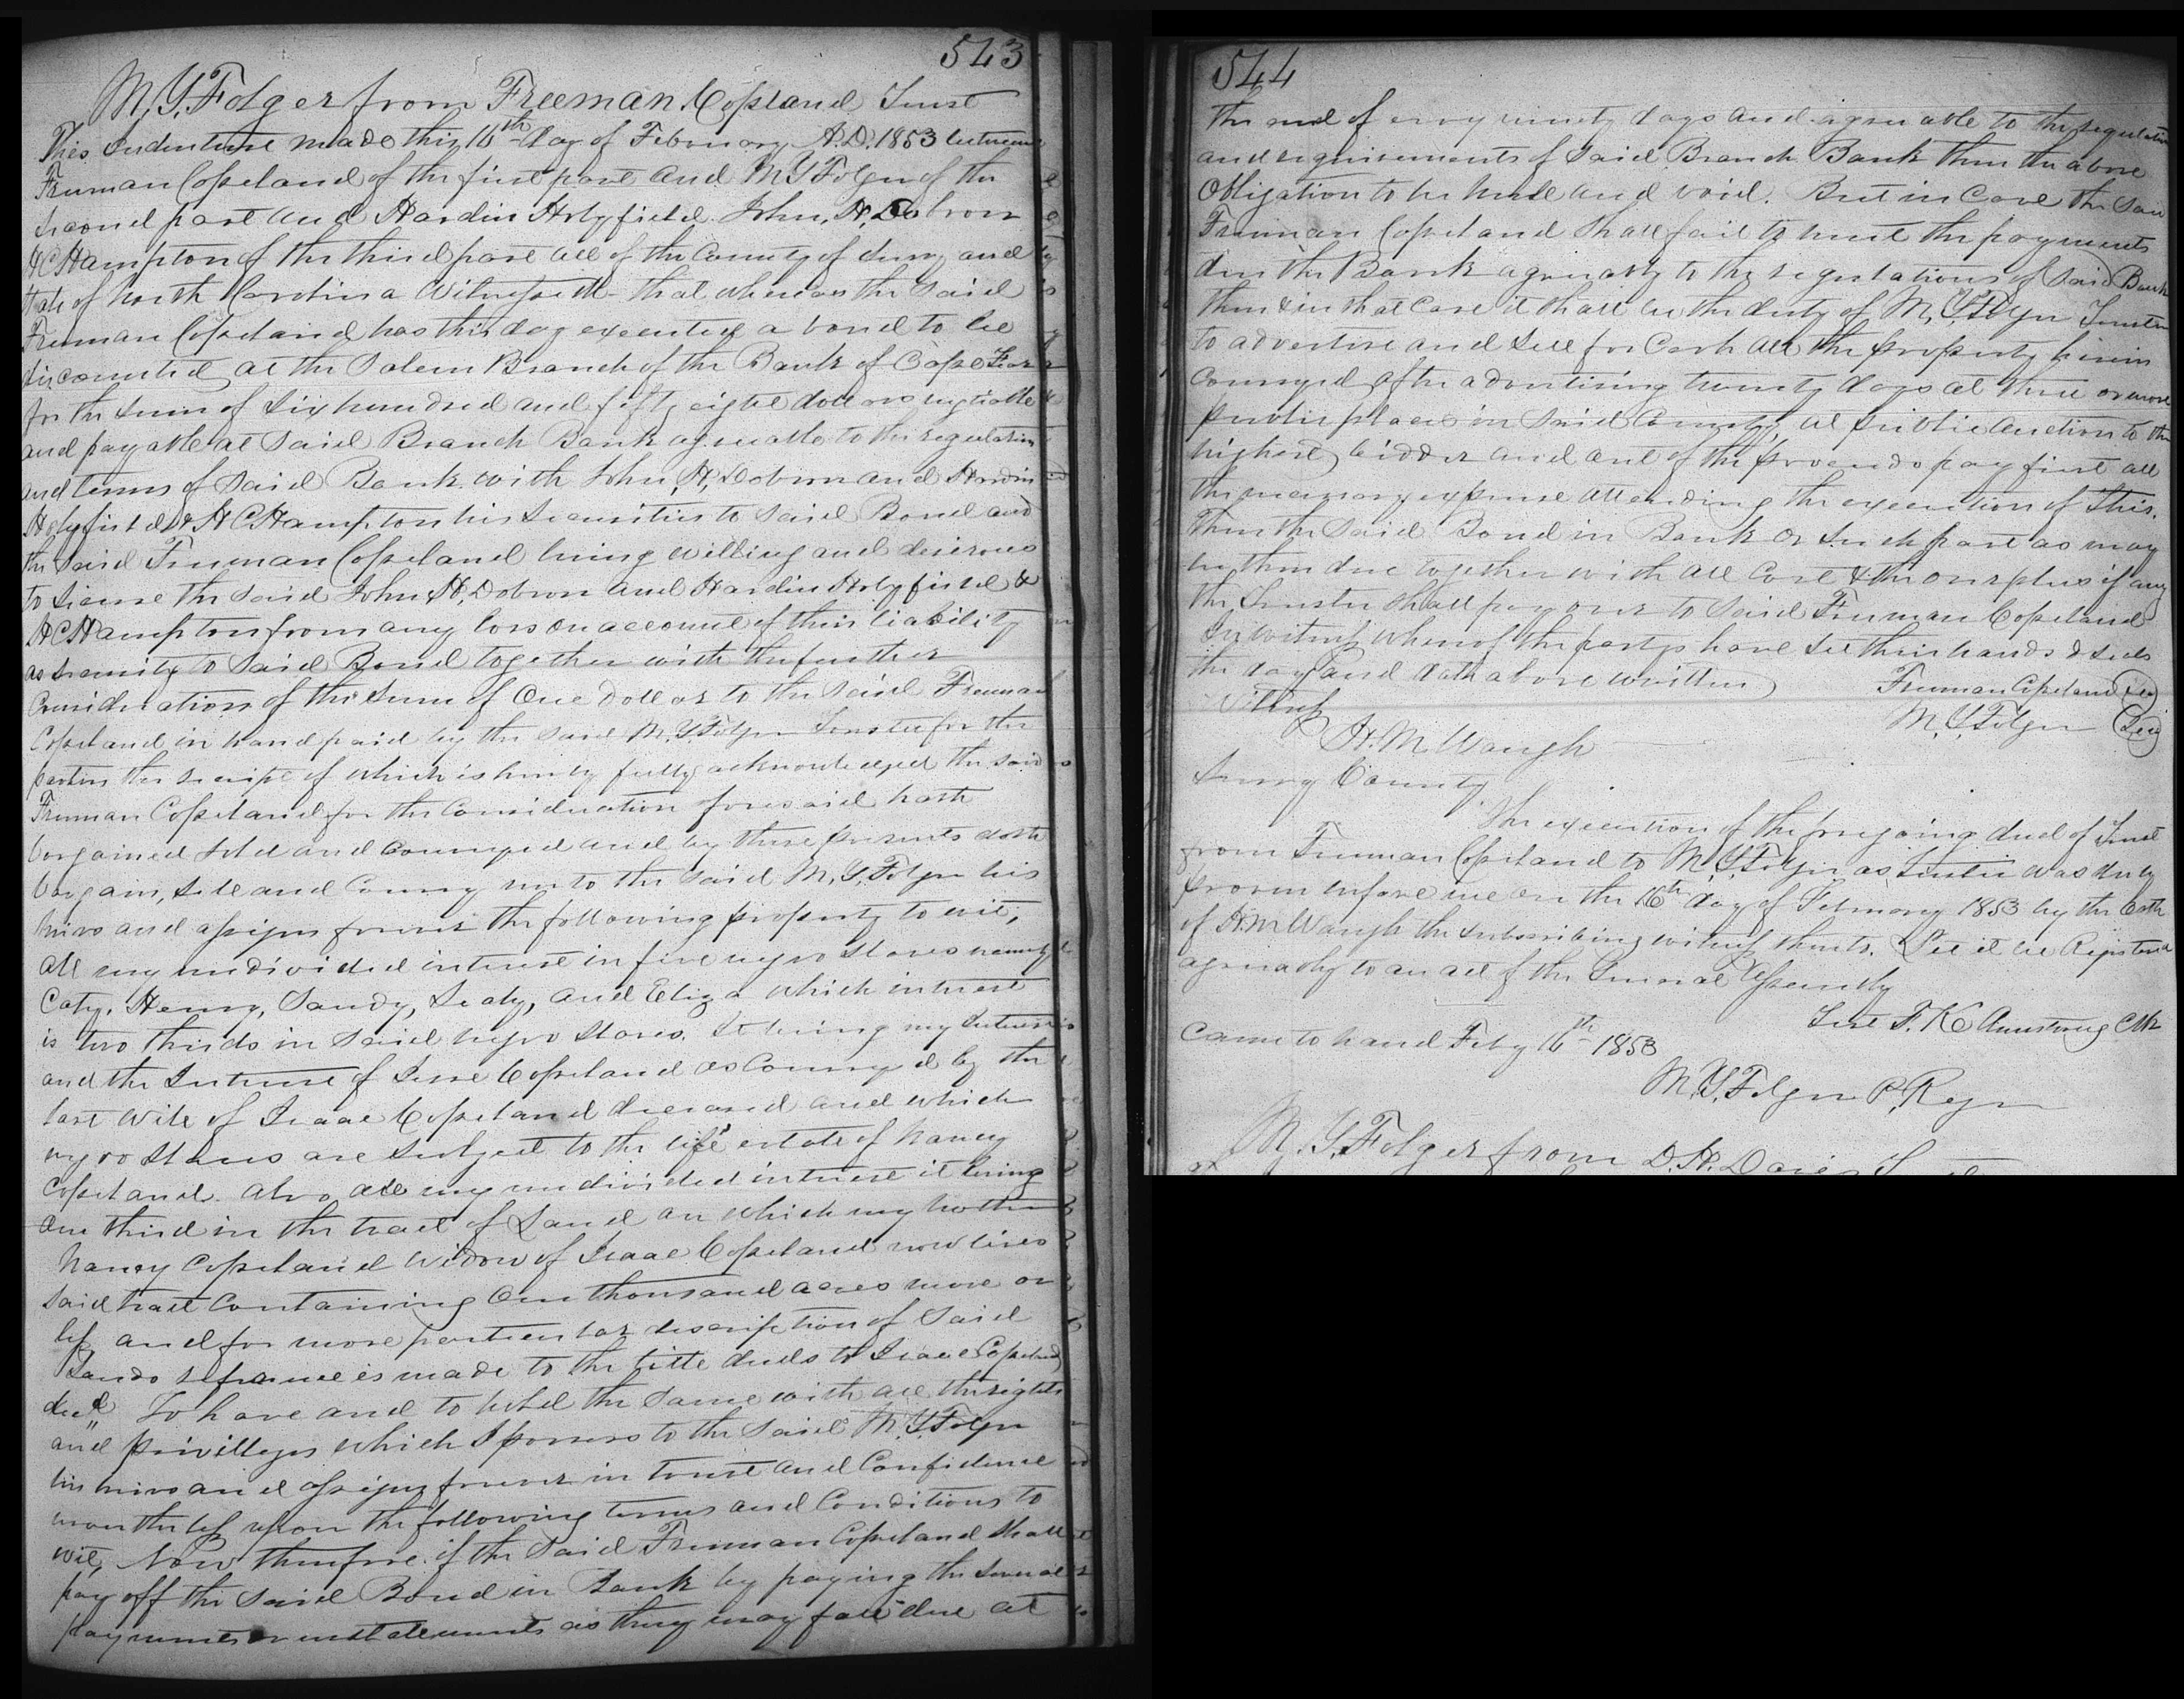 543
M. Y. Folger from Freeman Copeland Trust
This Indenture made this 16th day of February A.D. 1853 between
Freeman Copeland of the first part and M Y Folger of the
second part and Hardin Holyfield John, H, Dobson
H C Hampton of the third part all of the County of Surry and
State of North Carolina Witnesseth that whereas the said
Freeman Copeland has this day executed a bond to be
discounted at the Salem Branch of the Bank of Cape Fear
for the sum of six hundred and fifty eight dollars negotiable
and payable at said Branch Bank agreeable to the regulations
and terms of said Bank with John, H, Dobson and Hardin
Holyfield & H C Hampton his securities to said Bond and
the said Freeman Copeland being willing and desirous
to secure the said John, H, Dobson and Hardin Holyfield &
H C Hampton from any loss on account of their liability
as security to said Bond together with the further
Consideration of the sum of One dollar to the said Freeman
Copeland in hand paid by the said M. Y. Folger Trustee for the
parties the receipt of which is hereby fully acknowledged the said
Freeman Copeland for the Consideration foresaid hath
bargained sold and conveyed and by these presents doth
bargain, sell and Convey unto the said M, Y, Folger his
heirs and assigns forever the following property to wit;
All my undivided interest in five negro slaves namely
Caty, Henry, Sandy, Sealy, and Eliza which interest
is two thirds in said negro slaves. It being my Interest
and the Interest of Jesse Copeland as Conveyed by the
last Will of Isaac Copeland deceased and which
negro slaves are subject to the life estate of Nancy
Copeland. Also all my undivided interest it being
one third in the tract of Land on which my mother
Nancy Copeland widow of Isaac Copeland now lives
said tract Containing One thousand acres more or
less and for more particular description of said
Lands reference is made to the title deeds to Isaac Copeland
decd To have and to hold the same with all the rights
and privilleges which I possess to the said M, Y, Folger
his heirs and assigns forever in trust and Confidence
nevertheless upon the following terms and Conditions to
wit, Now therefore if the said Freeman Copeland shall
pay off the said Bond in Bank by paying the several
payments or installments as they may fall due at
544
the end of every ninety days and agreeable to the regulations
and requirements of said Branch Bank then the above
Obligation to be null and void. But in Case the said
Freeman Copeland shall fail to meet the payments
due the Bank agreeably to the regulations of said Bank
then & in that Case it shall be the duty of M, Y, Folger Trustee
to advertise and sell for Cash all the property herein
Conveyed after advertising twenty days at three or more
public places in said County, at public auction to the
highest bidder and out of the proceeds pay first all
the necessary expense attending the execution of this.
Then the said Bond in Bank or such part as may
be then due together with all Cost & the overplus if any
the Trustee shall pay over to said Freeman Copeland
In witness whereof the partys have set their hands & seals
the day and date above written
Freeman Copeland Seal
Witness
M, Y, Folger Seal
H. M. Waugh
Surry County
The execution of the foregoing deed of Trust
from Freeman Copeland to M, Y, Folger as Trustee was duly
proven before me on the 16th day of February 1853 by the Oath
of H. M Waugh the subscribing witness thereto. Let it be Registered
agreeably to an act of the General Assembly
Test F. K. Armstrong Clk
Came to hand Feby 16th 1853
M. Y. Folger P. Regr
M. Y. Folger from D. H. Davis